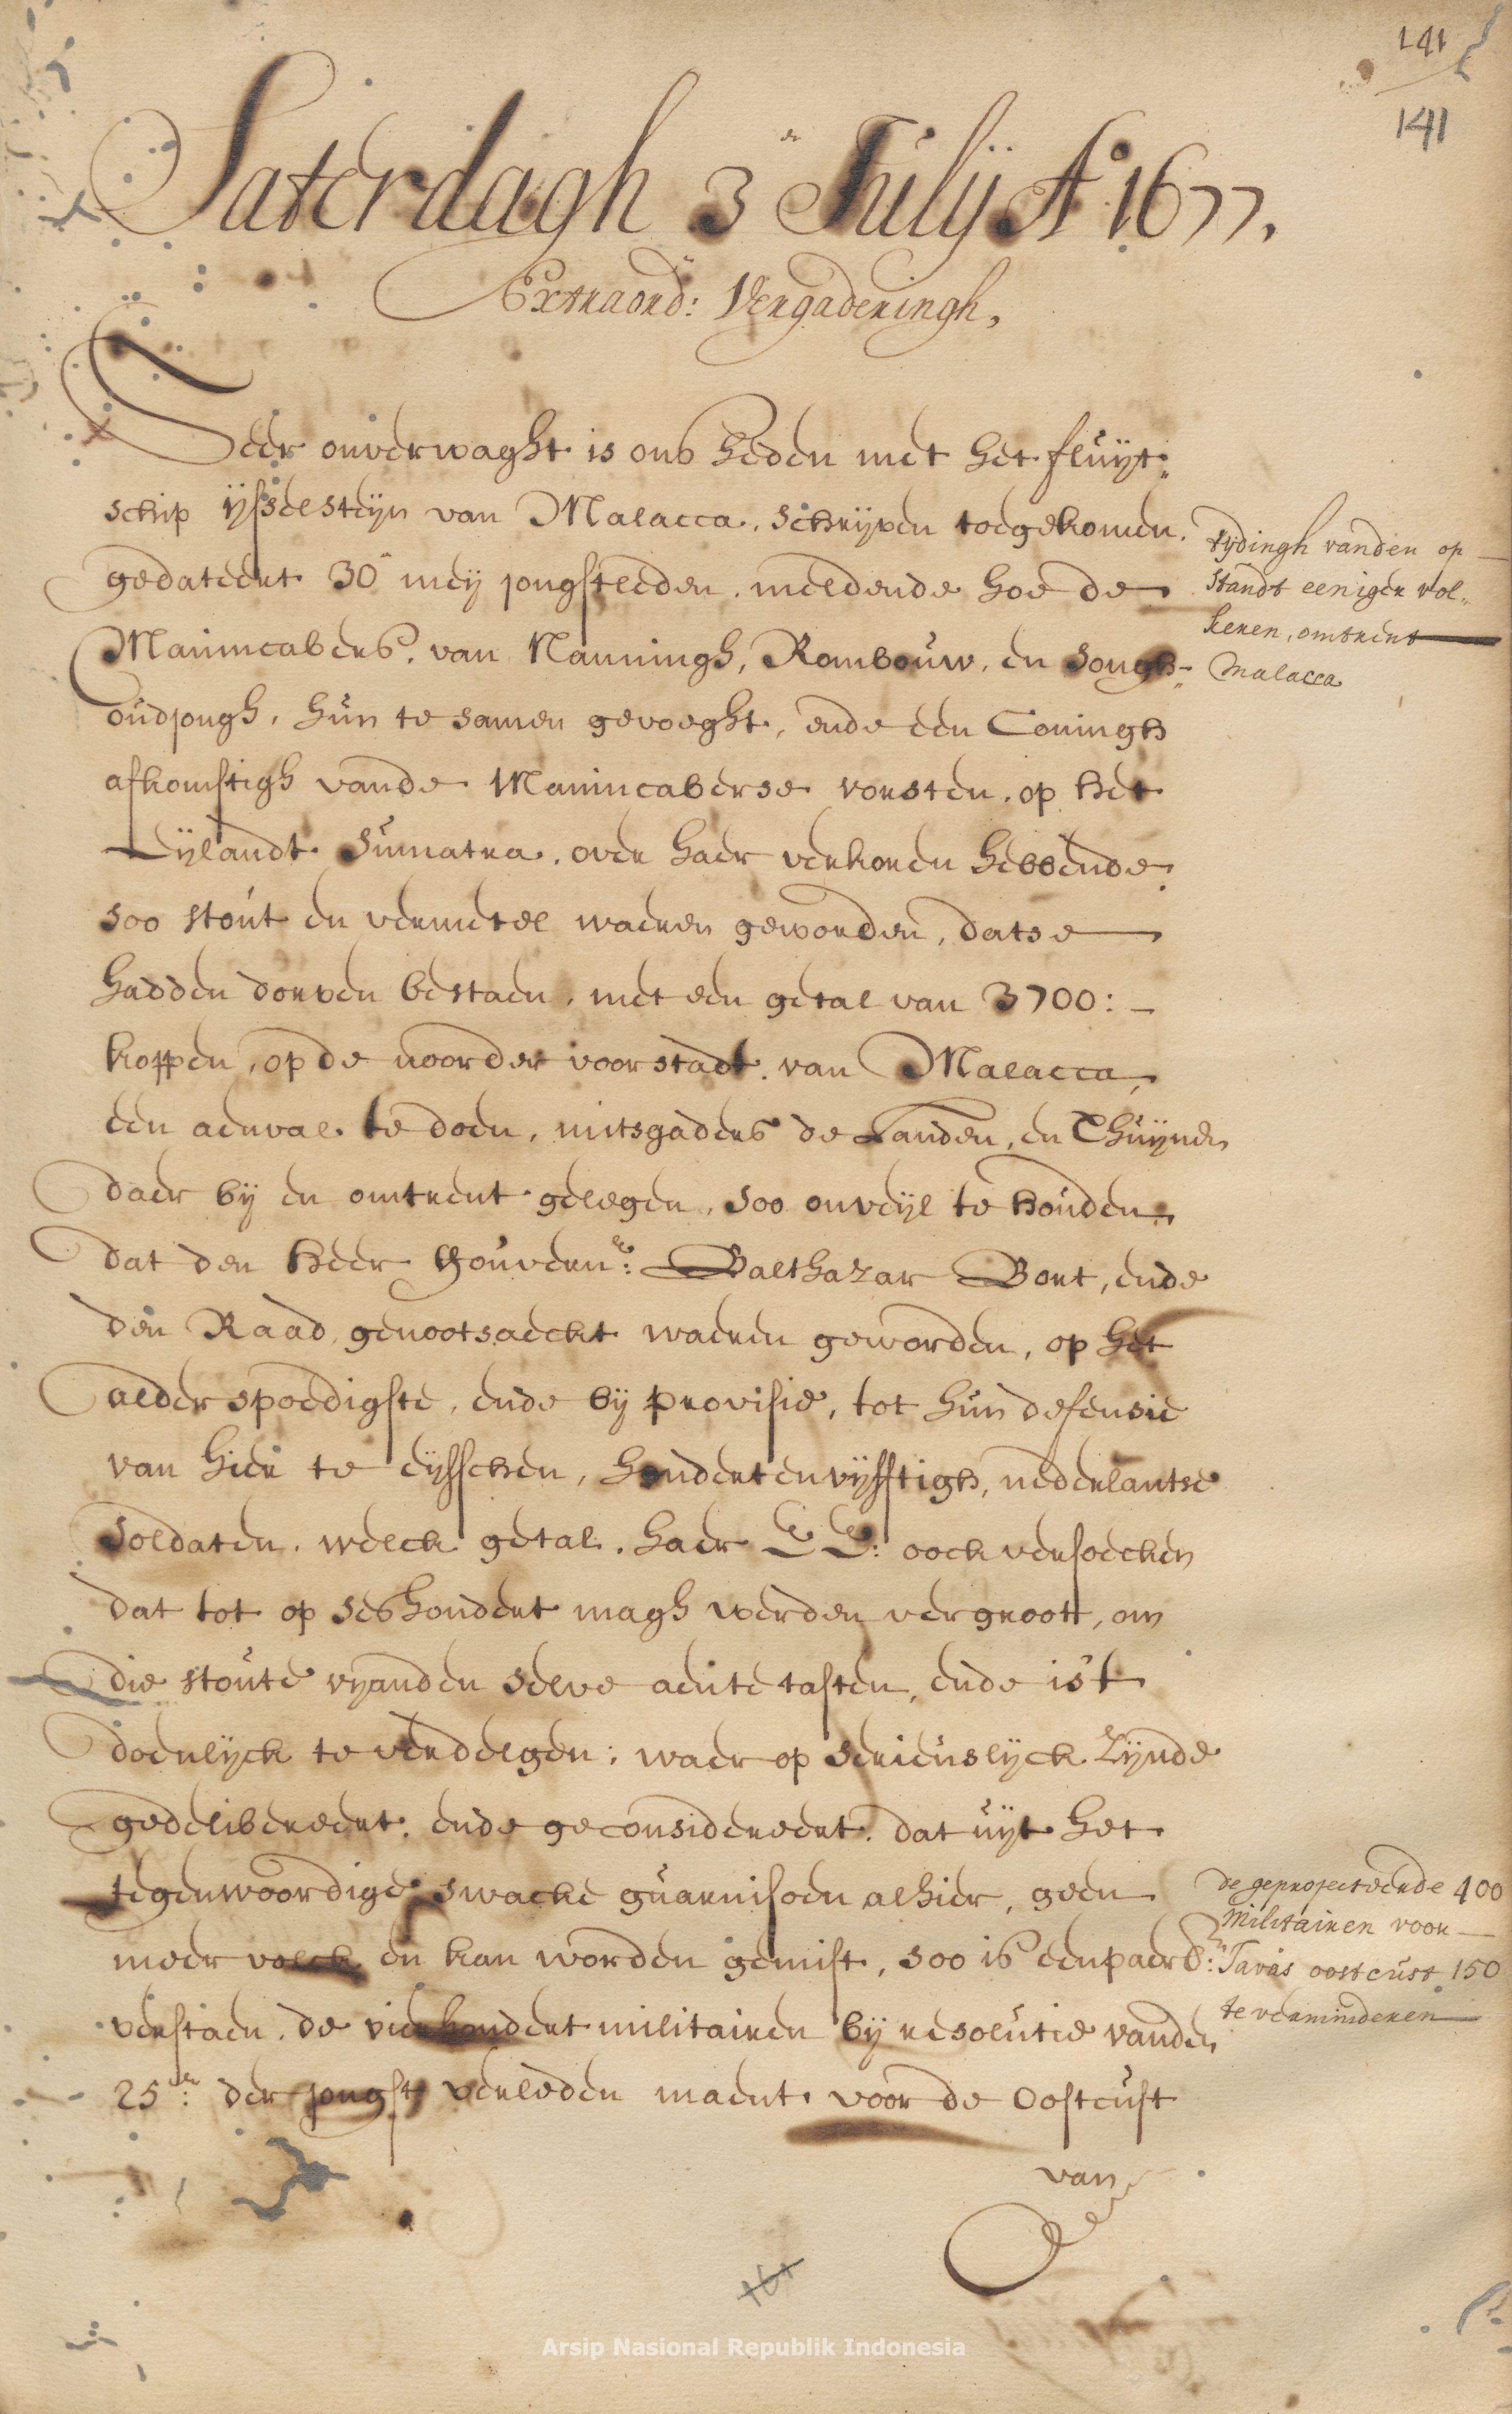 141
141
Saterdagh 3.en Julij Ao 1677.
Extraord:e Vergaderingh,
Seer onverwaght is ons heden met het fluijt„
schip ijsselsteijn van Malacca, schrijven toegekomen.
gedateert 30en meij jongstleeden, meldende hoe de
Manincabers, van Nanningh, Rombouw, en Songh„
oudjongh, hun te samen gevoeght, ende een Coningh
afkomstigh vande Manincaberse vorsten, op het
Eijlandt Sumatra, over haer verkoren hebbende,
soo stout en vermetel waeren geworden, datse
hadden dorven bestaen, met een getal van 3700: –
koppen, op de noorder voorstadt van Malacca,
een aenval te doen, mitsgaders de Landen, en Thuijnen
daer bij en omtrent gelegen, soo onveijl te houden
dat den heer Gouvern:r Balthazar Bort, ende
den Raad, genootsaeckt waeren geworden, op het
alderspoedigste, ende bij provisie, tot hun defensie
van hier te eijsschen, hondert en vijfftigh, nederlantse
Soldaten, welck getal, haer EE: oock versoecken
dat tot op seshondert magh werden vergroott, om
die stoute vyanden selve aen te tasten, ende is't
doenlijck te verdelgen; waer op serieuslijck Zijnde
gedelibereert, ende geconsidereert, dat uijt het
tegenwoordige swacke guarnisoen alhier, geen
meer volck en kan worden gemist, soo is eenpaer:
verstaen, de vierhondert militairen bij resolutie vanden
25en: der jongst verleden maent, voor de Oostcust
van
tydingh vanden op
standt eeniger vol„
keren, omtrent
Malacca
de geprojecteerde 400
Militairen voor
Javas oostcust 150
te verminderen
161
Arsip Nasional Republik Indonesia